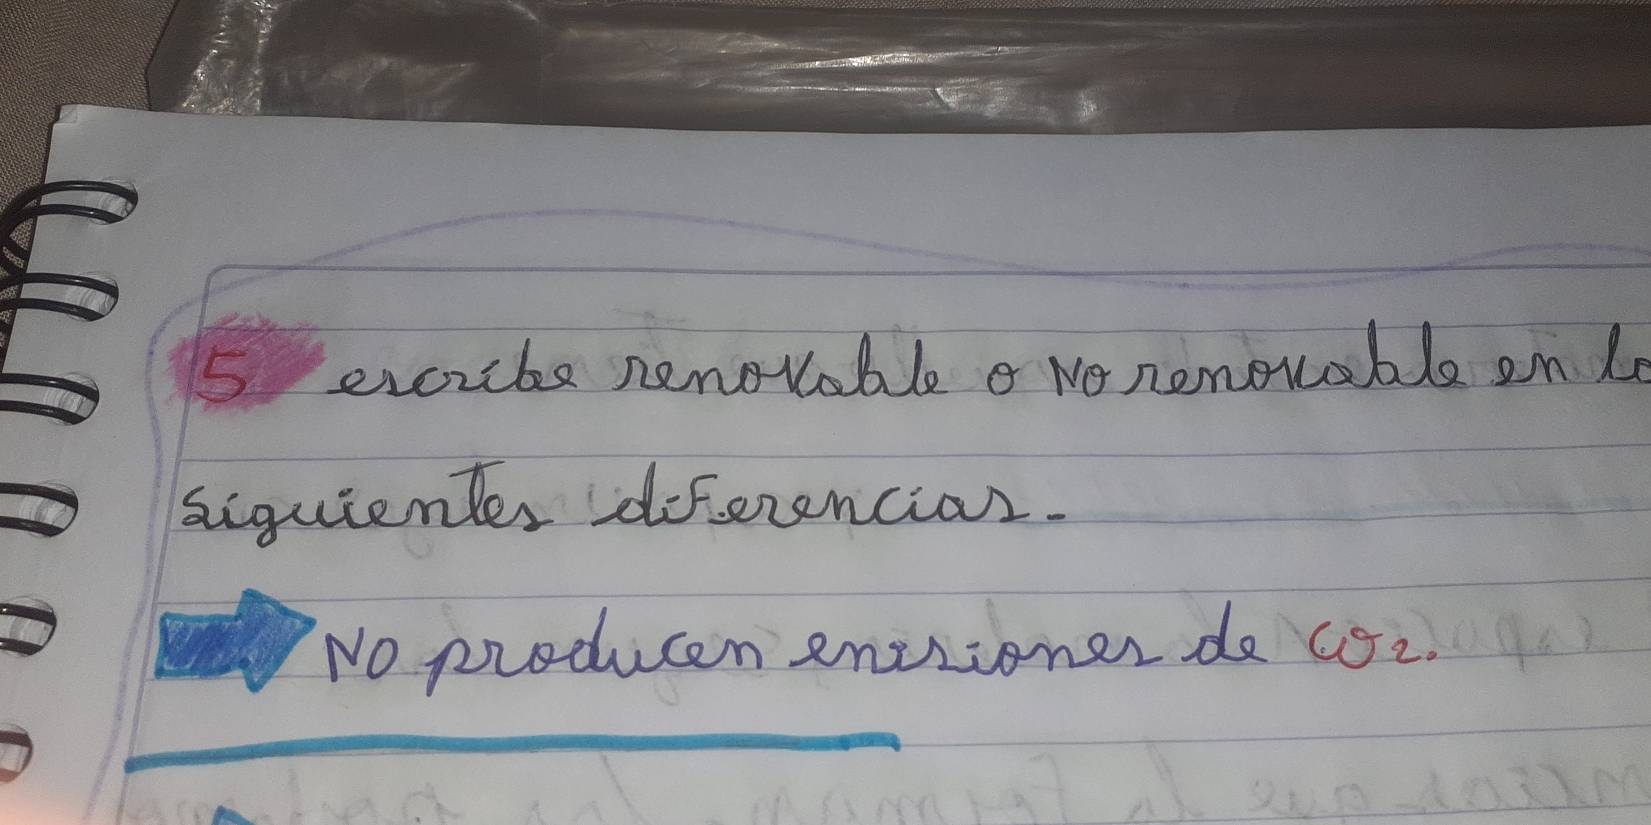 5 escribe renovable o No renovable en la
siguientes diferencias.
No producen enisiones de CO2.